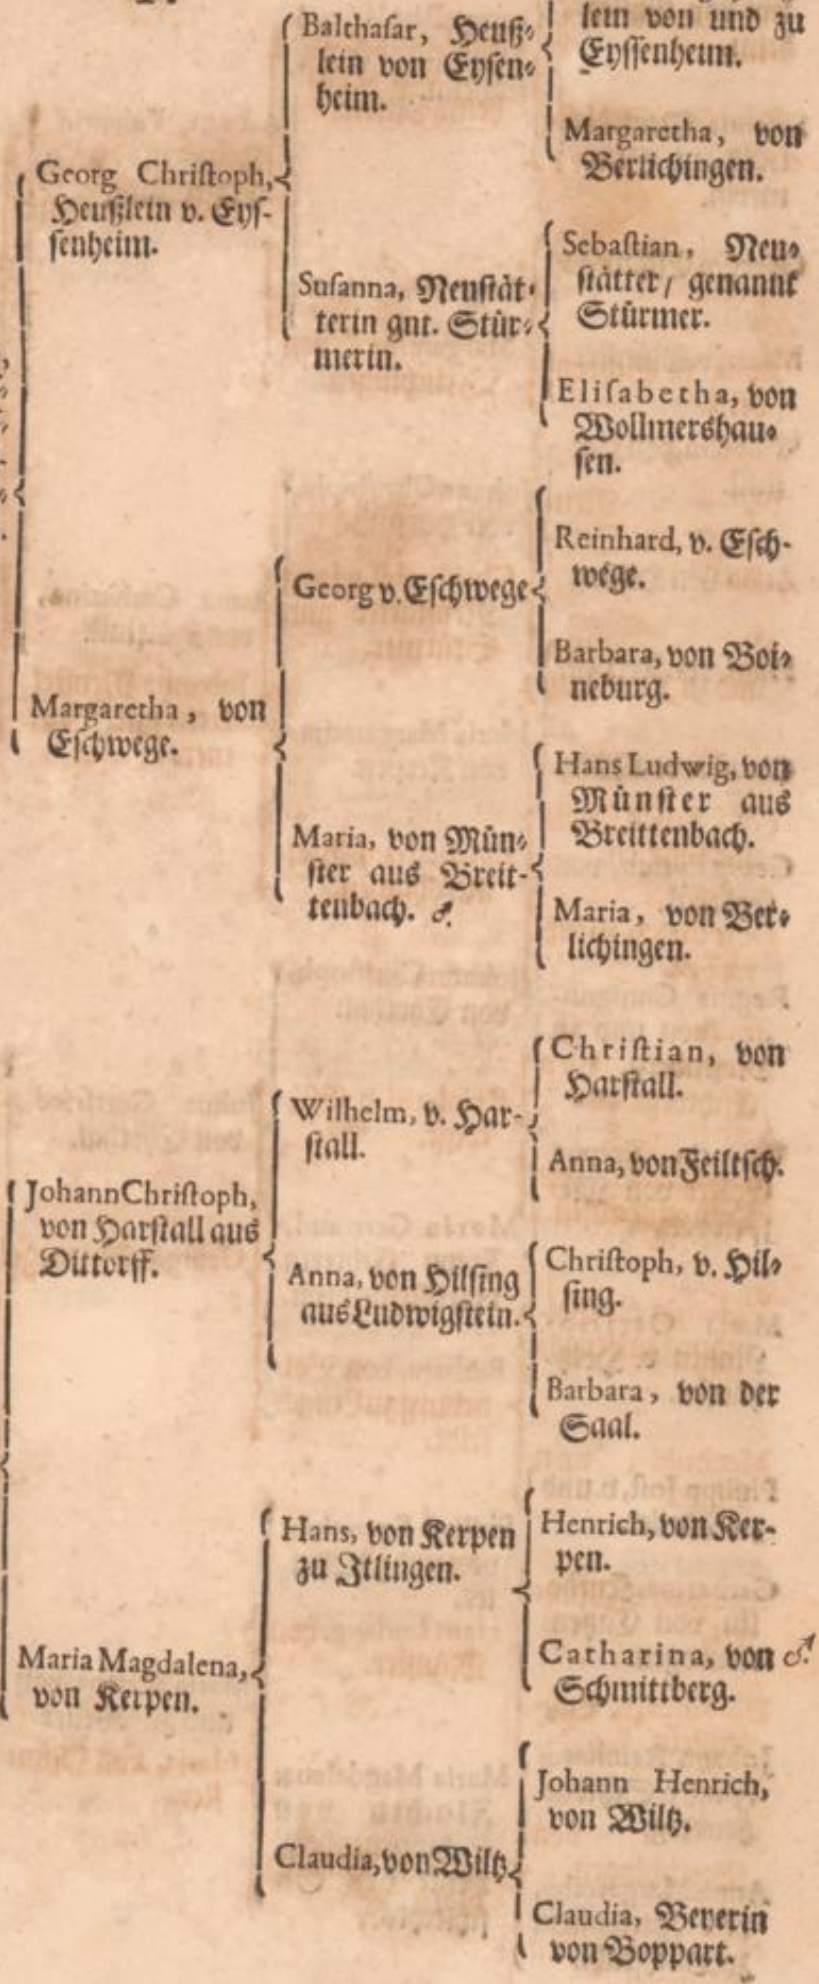 Georg Christoph,
Heußlein v. Eys-
senheim.
Margaretha, von
Eschwege.
Johann Christoph,
von Harstall aus
Dittorff.
Maria Magdalena,
von Kerpen.
Balthasar, Heuß-
lein von Eysen-
heim.
Susanna, Neustät-
terin gnt. Stür-
merin.
Georg v. Eschwege
Maria, von Mün-
ster aus Breit-
tenbach. ♂.
Wilhelm, v. Har-
stall.
Anna, von Hilsing
aus Ludwigstein.
Hans, von Kerpen
zu Itlingen.
Claudia, von Wiltz
lein von und zu
Eyssenheim.
Margaretha, von
Berlichingen.
Sebastian, Neu-
stätter / genannt
Stürmer.
Elisabetha, von
Wollmershau-
sen.
Reinhard, v. Esch-
wege.
Barbara, von Boi-
neburg.
Hans Ludwig, von
Münster aus
Breittenbach.
Maria, von Ber-
lichingen.
Christian, von
Harstall.
Anna, von Feiltsch.
Christoph, v. Hil-
sing.
Barbara, von der
Saal.
Henrich, von Ker-
pen.
Catharina, von ♂.
Schmittberg.
Johann Henrich,
von Wiltz.
Claudia, Beyerin
von Boppart.